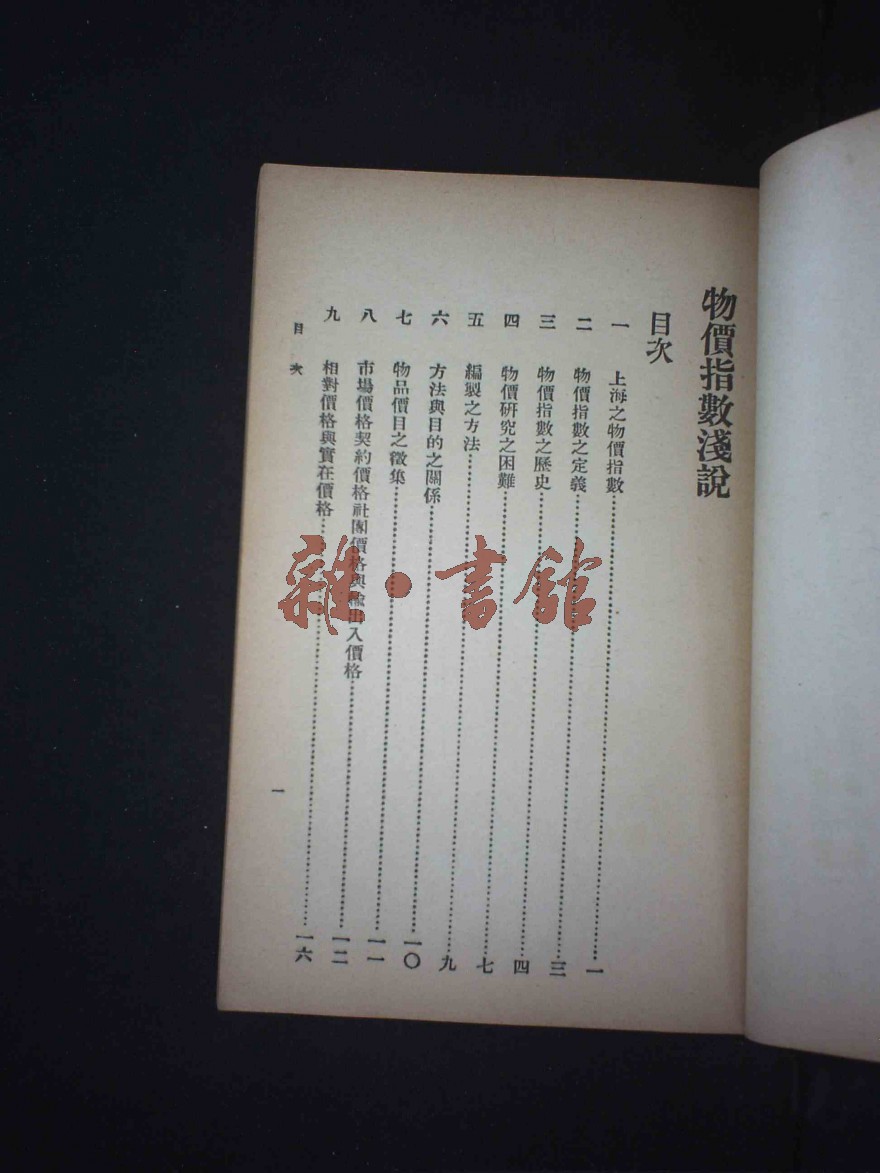 物價指數淺說
目次
一 上海之物價指數……一
二 物價指數之定義……三
三 物價指數之歷史……四
四 物價研究之困難……七
五 編製之方法……九
六 方法與目的之關係……一〇
七 物品價目之徵集……一一
八 市場價格契約價格社團價格與輸出入價格……一二
九 相對價格與實在價格……一六
目次
一
雜·書館